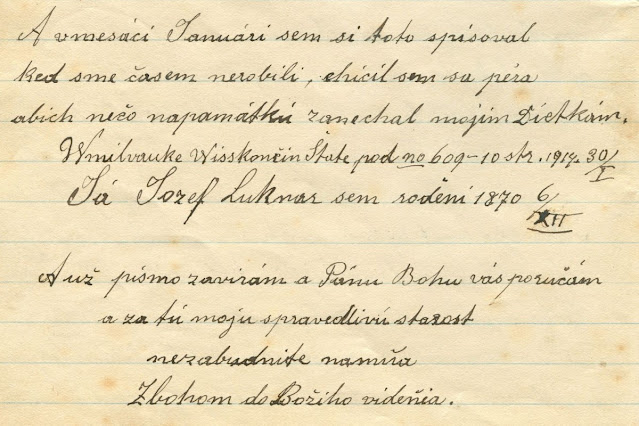 A vmesáci Januári sem si toto spisoval
ked sme časem nerobili, chicil sem sa péra
abich nečo napamátkú zanechal mojim Dietkám.
Wmilvauke Wisskončin Štate pod no 609-10 str. 1914 30/I
Já Jozef Luknar sem rodení 1870 6/XII
A už písmo zavirám a Pánu Bohu vás poručám
a za tú moju spravedlivú starost
nezabudnite namňa
Zbohom do Božiho videňia.